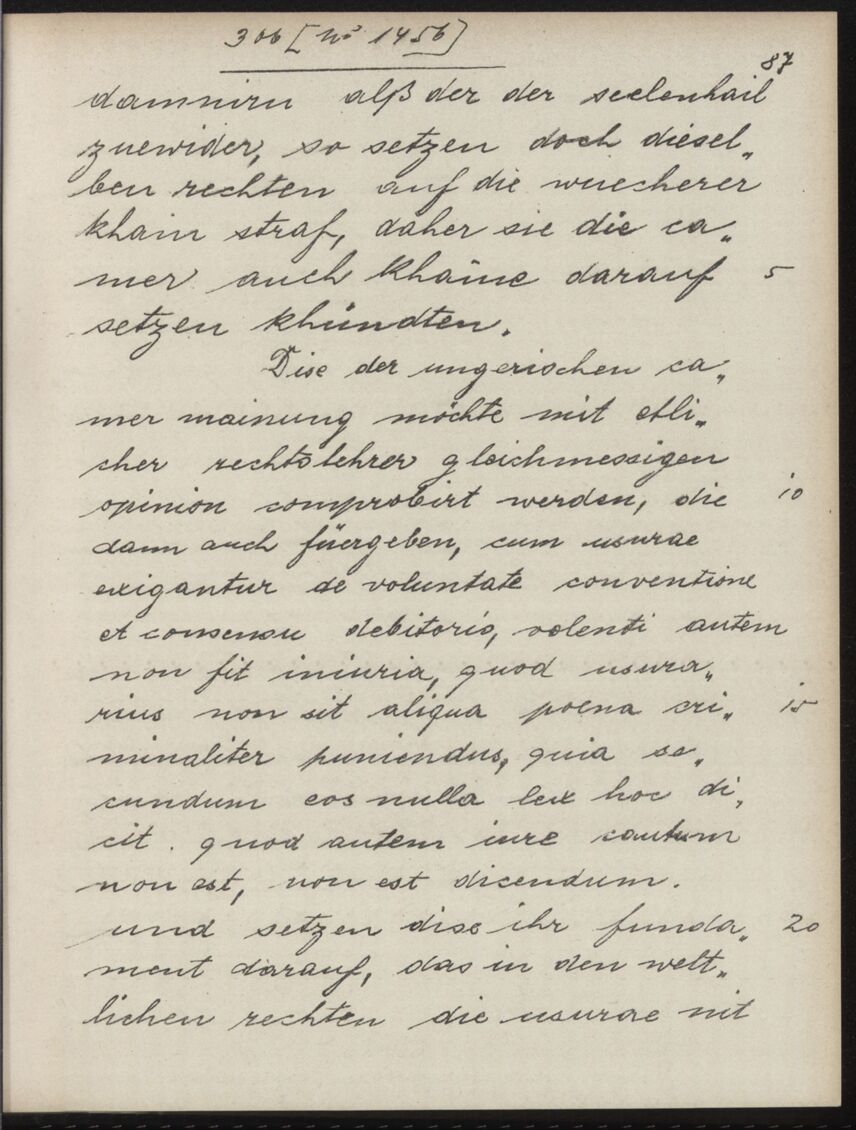 306 [Nº 1456]
87
damnirn alß der der seelenhail
zuewider, so setzen doch diesel„
ben rechten auf die wuecherer
khain straf, daher sie die ca„
mer auch khaine darauf 5
setzen khündten.
Dise der ungerischen ca„
mer mainung möchte mit etli„
cher rechtslehrer gleichmessigen
opinion comprobirt werden, die 10
dann auch füergeben, cum usurae
exigantur de voluntate conventione
et consensu debitoris, volenti autem
non fit iniuria, quod usura„
rius non sit aliqua poena cri„ 15
minaliter puniendus, quia se„
cundum eos nulla lex hoc di„
cit. quod autem iure cautum
non est, non est dicendum.
und setzen dise ihr funda„ 20
ment darauf, das in den welt„
lichen rechten die usurae nit